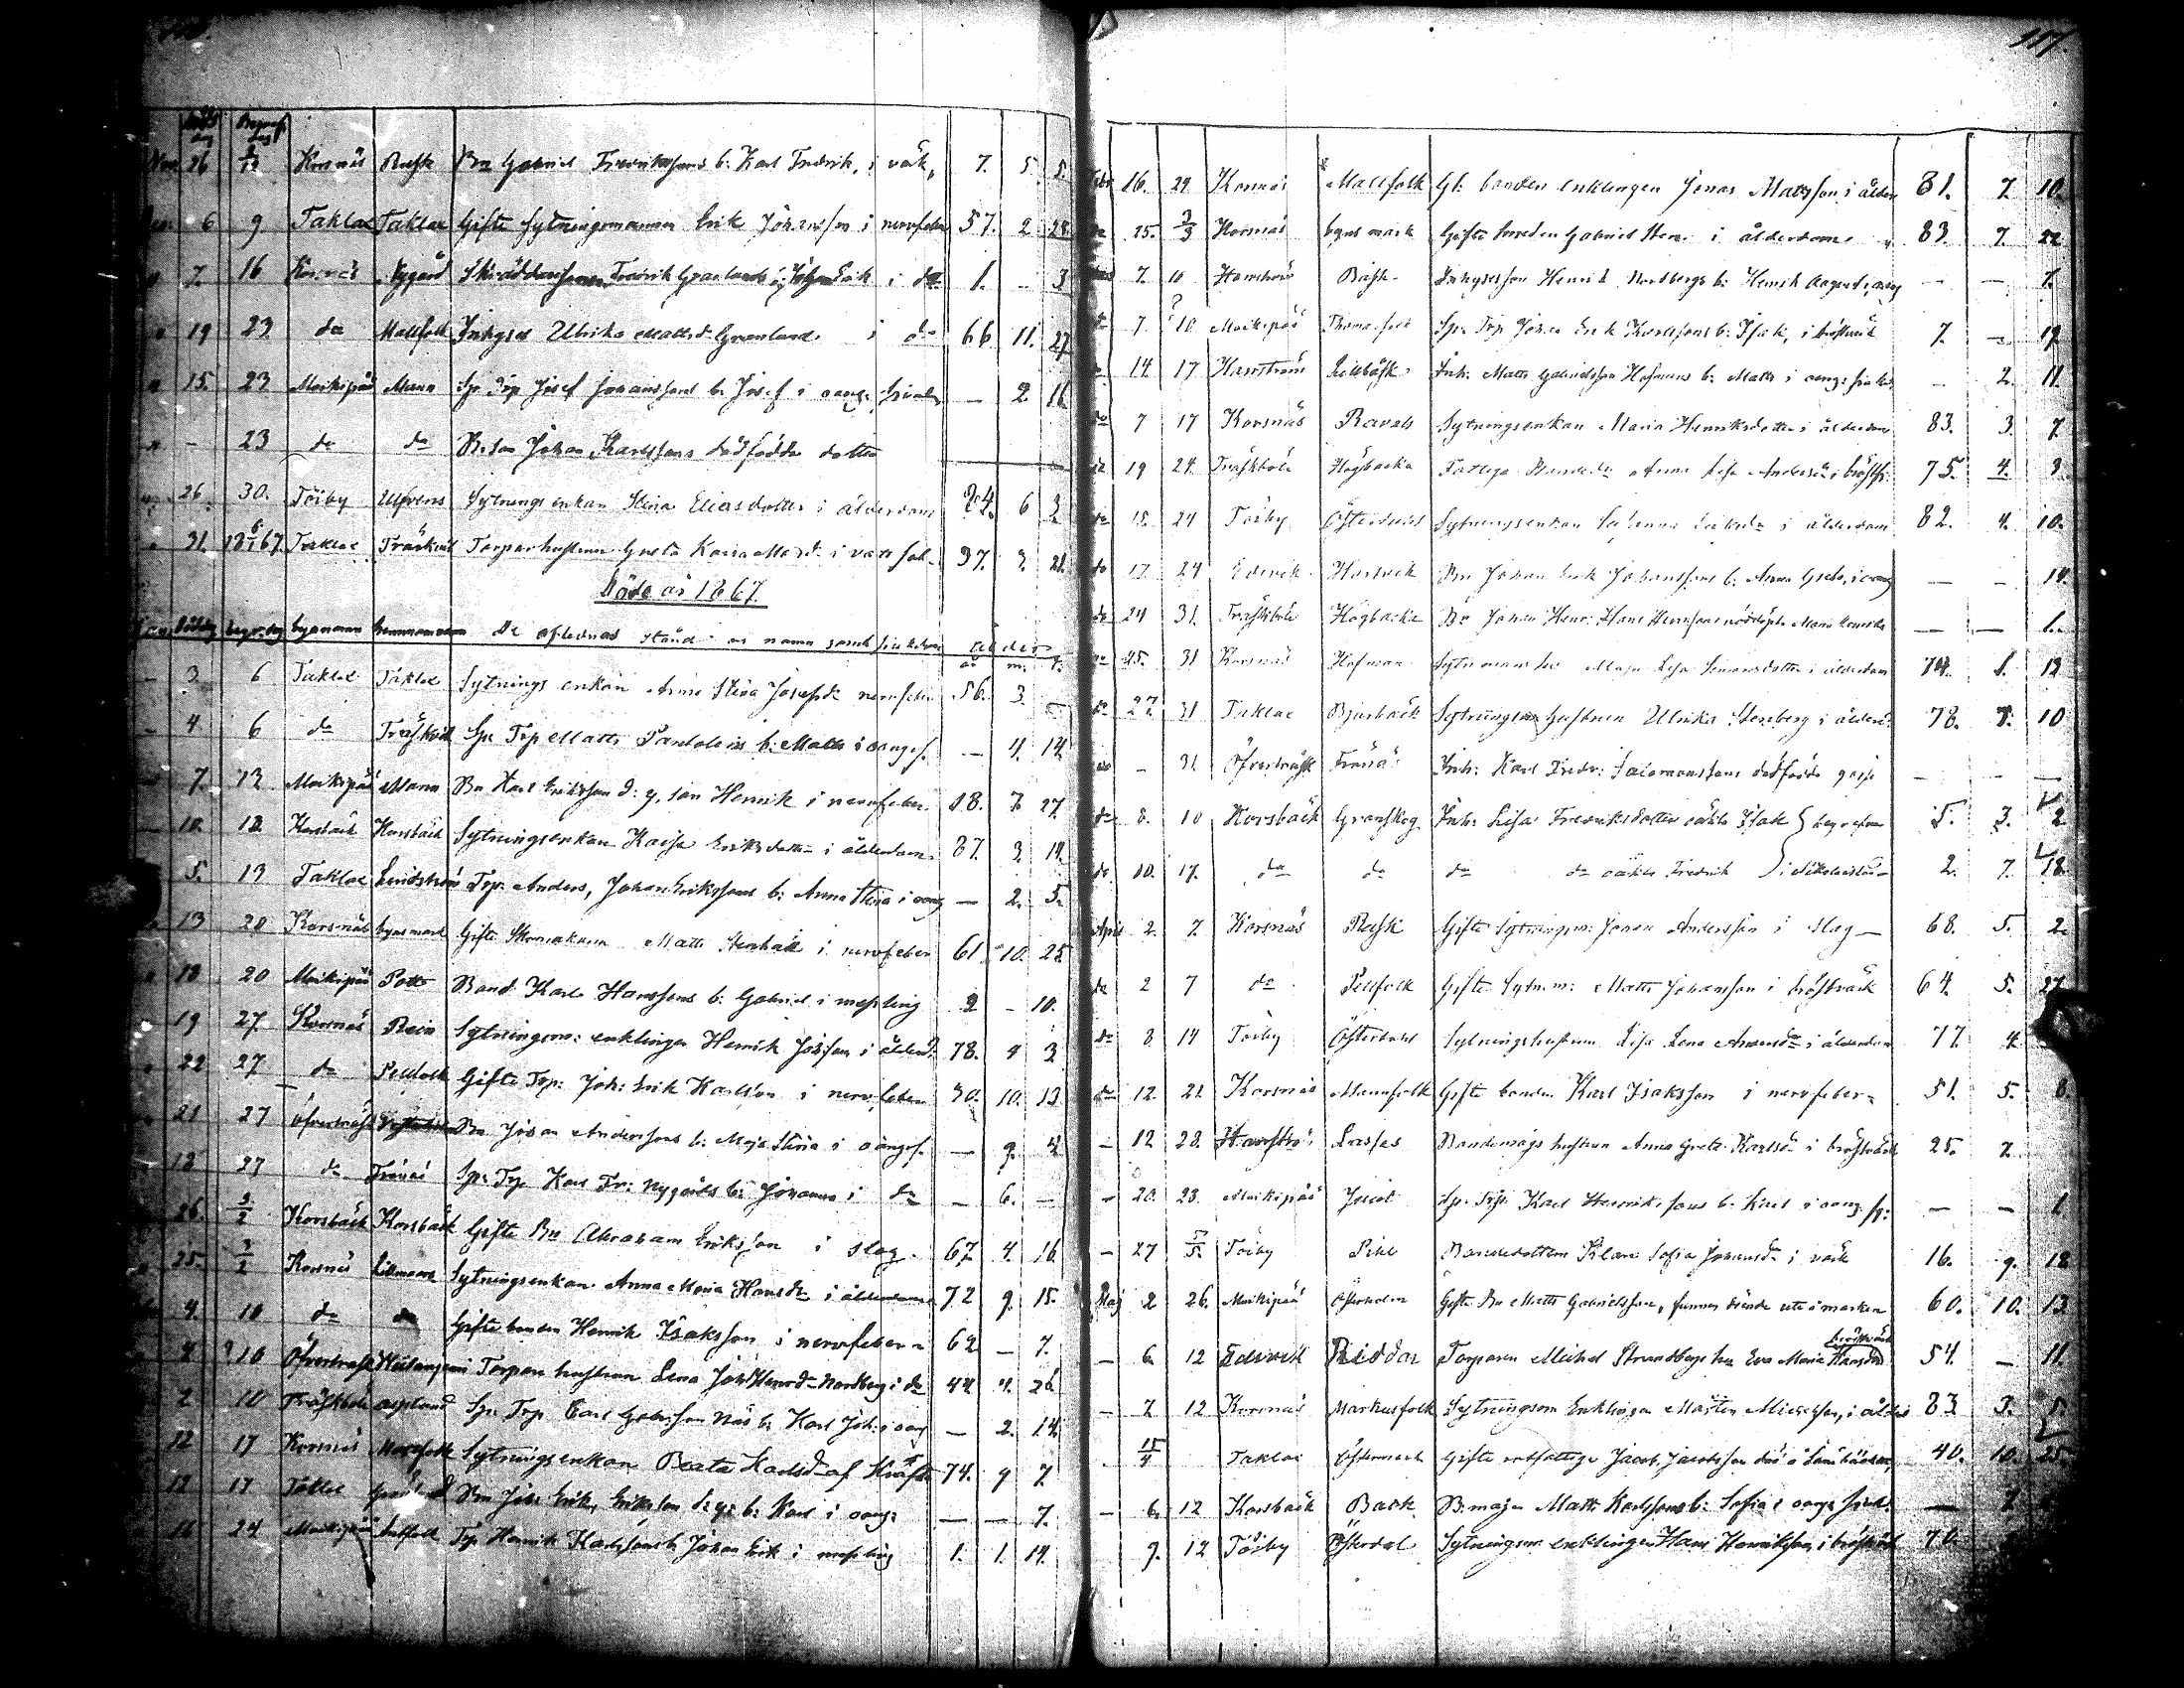 117.
Döds dag Begraf. dag
Nov. 26 2/12 Korsnäs Rusk Bn Gabriel Fredrikssons b: Karl Fredrik, i väk, 7. 5. 5.
6 9 Taklax Taklax Gifte Sytningsmannen Erik Johansson i nervfeber 57. 2 28.
7. 16 Korsnäs Nygård Fredrik Granlunds b: Johan Erik i do 1. - 3
19 23 do Mallfolk Inhyses Ulrika Mattsd. Grenlund. i do 66 11. 27
15. 23 Moikipää Mann Sp. Trp Josef Johanssons b. Josef i oang: sjukd. — 2 16.
- 23 do do B. son Johan Karlssons dödfödda dotter
26. 30. Töiby Ulfvens Sytningsenkan Stina Eliasdotter i ålderdom 84. 6 3
31. 6/1 1867. Taklax Träskvik Torparhustrun Greta Kaisa i vattsot. 37. 21.
Döde år 1867.
Dödsdag begr:dag bynamn hemmanamn De aflednas stånd och namn samt sjukdom ålder
år m: d:
3 6 Taklax Taklax Sytningsenkan Anna Stina Josefsd: nervfeber 56. 3 —
4. 6 do Träskvik Sp: Trp Matts Pantoleins b: Matts i oang: s. — 4. 14
7. 13 Moikipää Mann Bn Karl Erikssons d: y, son Henrik i nervfeber 18. 7 27
10. 13. Korsbäck Korsbäck Sytningsenkan Kajsa Eriksdotter i ålderdom. 87. 3. 14.
5. 13 Taklax Lindström Trp: Anders, Johan Erikssons b: Anna Stina i oang — 2. 5.
13 20 Korsnäs byns mark Gifte Skomakaren Matts Stenbäck i nervfeber 61 10. 25.
18 20 Moikipää Potts Band. Karls Hanssons b: Gabriel i messling 2 - 10.
19 27. Korsnäs Rein Sytningsm: enklingen Henrik Johsson i ålderd. 78. 9 3
22 27 do Pellfolk Gifte Trp: Joh: Erik Karlsson i nervfeber 30. 10. 13
21 27 Öfverträsk Bn Johan Anderssons b: Maja Stina i oang s. — 9. 4
12 27 do Frönäs Sp: Trp Karl Fr: Nygårds b: Johanna i do — 6. —
26. 3/2 Korsbäck Korsbäck Gifte Bn Abraham Eriksson i slag. 67. 4. 16.
25. 3/2 Korsnäs Lillmans Sytningsenkan Anna Maria Hansd: i ålderdom 72 9. 15.
4. 10 do do Gifte bonden Henrik Isaksson i nervfeber 62 — 7.
4 10 Öfverträsk Torpare hustrun Lena Joh: Henrsd: Nordberg i do 44. 4. 26
2. 10 Träskböle Asplund Sp: Trp Carl Gabrsson Näs b: Karl Joh: i oang — 2. 14
12 17 Korsnäs Sytningsenkan Beata Karlsd: af Kräfta 74. 9 7
12 17 Taklax Bn Joh: Erik Eriksson d: y: b: Karl i oang: — — 7.
16 24 Moikipää Trp Henrik Karlssons b: Johan Erik i messling 1. 1. 14.
16. 24. Korsnäs Mallfolk Gl: bonden enklingen Jonas Mattsson i ålder 81. 7. 10.
25. 3/3 Korsnäs byns mark Gifte Smeden Gabriel Sten i ålderdom 83. 7. 22
7. 10 Harrström Båsk Inhysesson Henrik Nordbergs b: Henrik August, oang — — 7.
7. 10. Moikipää Thomasfolk Sp: Trp Johan Erik Karlssons b: Isak, i bröstvärk 7. — 19
14 17 Harrström Rollbäck Inh: Matts Gabrielsson Hofmans b: Matts i oang: sjukd. — 2. 11.
do 7 17 Korsnäs Ravals Sytningsenkan Maria Henriksdotter i ålderdom 83. 3. 7
19 24. Träskböle Högbacka Fattiga Anna Lisa Andersd: i bröstsj: 75. 4. 3.
15. 24 Töiby Österdahl Sytningsenkan Susanna Eriksd: i ålderdom 82. 4. 10.
do 17. 24 Edsvik Hartvik Bn Johan Erik Johanssons b: Anna Greta, i oang — — 14.
24 31. Träskböle Högbacka Bn Johan Henr: Hans Henrssons nöddöpta Maria — — 1.
25. 31 Korsnäs Hofman Maja Lisa Simonsdotter i ålderdom 74. 1. 13
27. 31 Taklax Bjurbäck Sytningshustrun Ulrika Stenberg i ålderd: 78. 7. 10
do — 31. Öfverträsk Frönäs Inh: Karl Fredr: Salomonssons dödfödda gosse — — —
8. 10 Korsbäck Granskog Inh: Lisa Fredriksdotters oäkta Isak } begrafne 5. 3. 2
do 10. 17. do do do do oäkta Fredrik } i Nikolaistad 2. 7. 18.
April 2. 7. Korsnäs Rusk Gifte Sytningsm: Johan Andersson i slag — 68. 5. 2.
do 2 7 do Pellfolk Gifte Sytn.m: Matts Johansson i bröstvärk 64. 5. 27
do 8 14 Töiby Österdahl Sytningshustrun Lisa Lena Andersd: i ålderdom 77. 4.
do 12. 21. Korsnäs Mannfolk Gifte bonden Karl Isaksson i nervfeber 51. 5. 6.
– 12 28. Harrström Lasses Bondemågs hustrun Anna Greta Karlsd: i bröstvärk 25. 7
– 20. 28. Moikipää Juus Sp: Trp. Karl Henrikssons b: Karl i oang. sj: — — 1
– 27 5/5. Töiby Pihl Bondedottern Klara Sofia Johansd: i väck 16. 9. 18
Maj 2 26. Moikipää Österholm Gifte Bn Matts Gabrielsson, funnen döende ute i marken 60. 10. 13
– 6. 12 Edsvik Riddar Torparen Michel Strandbergs hu Eva Maria Hansdr bröstvärk 54. — 11.
– 7 12 Korsnäs Markusfolk Sytningsm Enklingen Mårten Michelsson, i ålder 83. 3. 5.
15/4 Taklax Östermark Gifte rotfattige Jacob Jacobsson 40. 10. 25.
– 6. 12 Korsbäck Back B:mågen Matts Karlssons b: Sofia i oang: sjukd. — 7.
9. 12 Töiby Österdal Sytningsm enklingen Hans Henriksson i bröstvärk 76